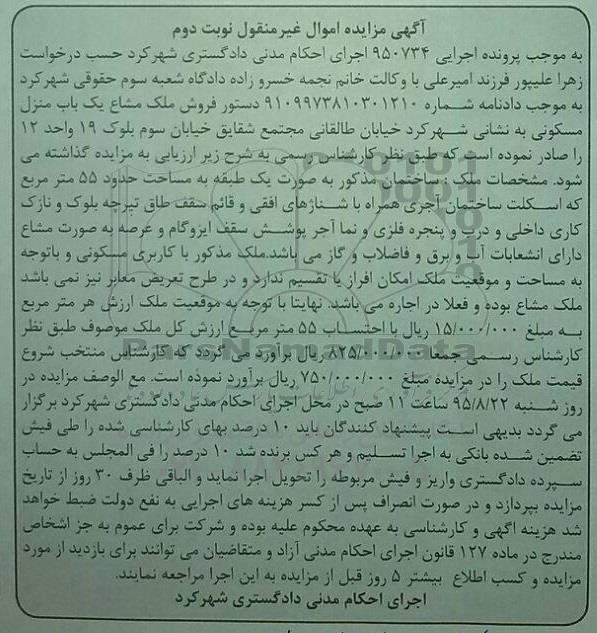 آگهی مزایده اموال غیرمنقول نوبت دوم
به موجب پرونده اجرایی ۹۵۰۷۳۴ اجرای احکام مدنی دادگستری شهرکرد حسب درخواست
زهرا علیپور فرزند امیرعلی با وکالت خانم نجمه خسرو زاده دادگاه شعبه سوم حقوقی شهرکرد
به موجب دادنامه شماره ۹۱۰۹۹۷۳۸۱۰۳۰۱۲۱۰ دستور فروش ملک مشاع یک باب منزل
مسکونی به نشانی شهرکرد خیابان طالقانی مجتمع شقایق خیابان سوم بلوک ۱۹ واحد ۱۲
را صادر نموده است که طبق نظر کارشناس رسمی به شرح زیر ارزیابی به مزایده گذاشته می
شود. مشخصات ملک : ساختمان مذکور به صورت یک طبقه به مساحت حدود ۵۵ متر مربع
که اسکلت ساختمان آجری همراه با شناژهای افقی و قائم سقف طاق تیرچه بلوک و نازک
کاری داخلی و درب و پنجره فلزی و نما آجر پوشش سقف ایزوگام و عرصه به صورت مشاع
دارای انشعابات آب و برق و فاضلاب و گاز می باشد.ملک مذکور با کاربری مسکونی و باتوجه
به مساحت و موقعیت ملک امکان افراز یا تقسیم ندارد و در طرح تعریض معابر نیز نمی باشد
ملک مشاع بوده و فعلا در اجاره می باشد. نهایتا با توجه به موقعیت ملک ارزش هر متر مربع
به مبلغ ۱۵/۰۰۰/۰۰۰ ریال با احتساب ۵۵ متر مربع ارزش کل ملک موصوف طبق نظر
کارشناس رسمی جمعا ۸۲۵/۰۰۰/۰۰۰ ریال برآورد می گردد که کارشناس منتخب شروع
قیمت ملک را در مزایده مبلغ ۷۵۰/۰۰۰/۰۰۰ ریال برآورد نموده است. مع الوصف مزایده در
روز شنبه ۹۵/۸/۲۲ ساعت ۱۱ صبح در محل اجرای احکام مدنی دادگستری شهرکرد برگزار
می گردد بدیهی است پیشنهاد کنندگان باید ۱۰ درصد بهای کارشناسی شده را طی فیش
تضمین شده بانکی به اجرا تسلیم و هر کس برنده شد ۱۰ درصد را فی المجلس به حساب
سپرده دادگستری واریز و فیش مربوطه را تحویل اجرا نماید و الباقی ظرف ۳۰ روز از تاریخ
مزایده بپردازد و در صورت انصراف پس از کسر هزینه های اجرایی به نفع دولت ضبط خواهد
شد هزینه اگهی و کارشناسی به عهده محکوم علیه بوده و شرکت برای عموم به جز اشخاص
مندرج در ماده ۱۲۷ قانون اجرای احکام مدنی آزاد و متقاضیان می توانند برای بازدید از مورد
مزایده و کسب اطلاع بیشتر ۵ روز قبل از مزایده به این اجرا مراجعه نمایند.
اجرای احکام مدنی دادگستری شهرکرد
ParsNamadData